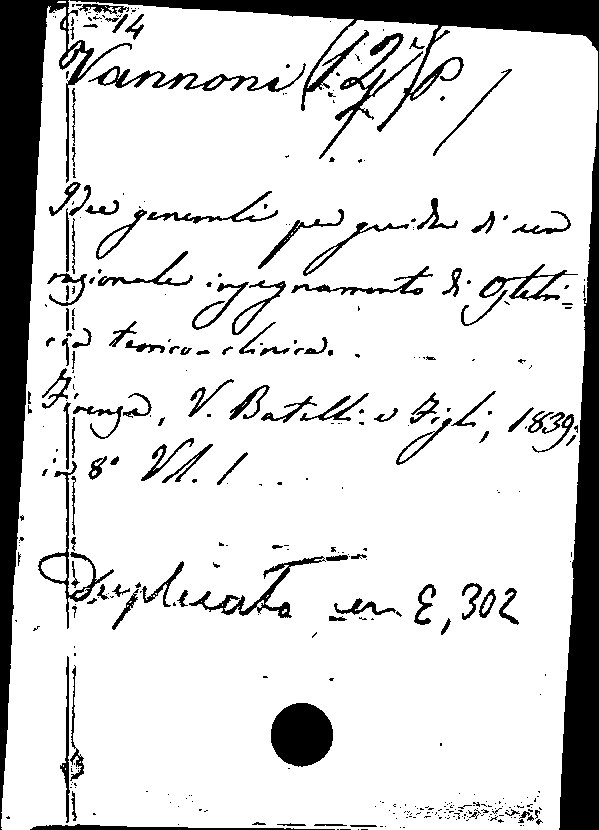 C-14
Vannoni P.
Idee generali per guida di un
razionale insegnamento di Ostetri=
cia teorico-clinica.
Firenze, V. Batelli e Figli, 1839,
in 8° Vol. 1
Duplicato in E, 302